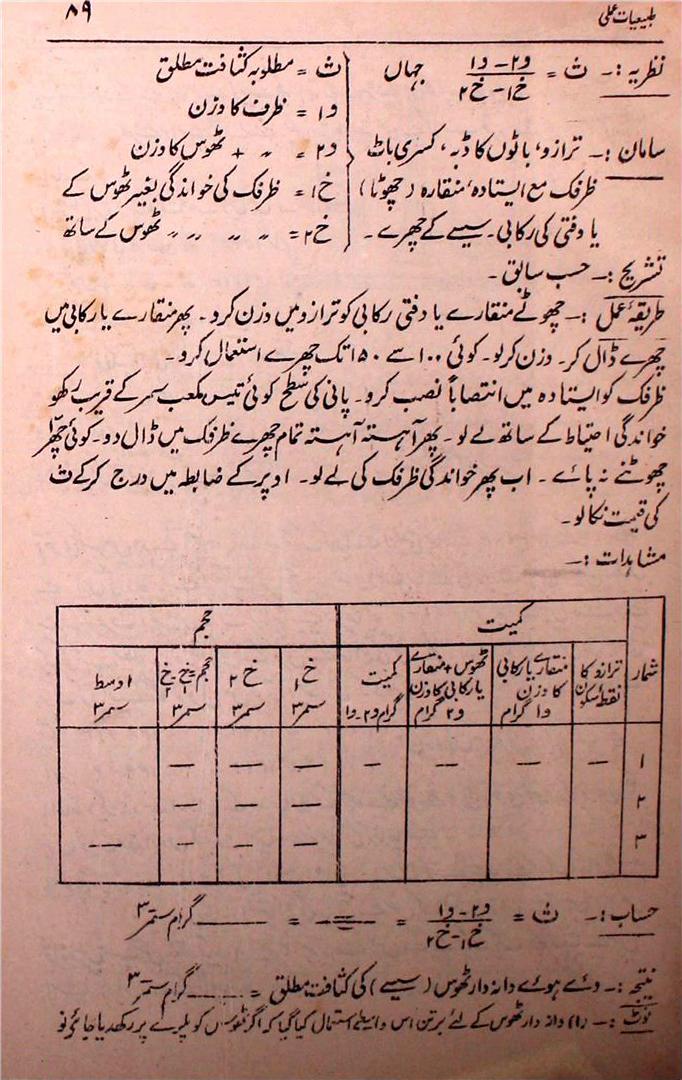 طبیعیات عملی
۸۹
نظریہ :- ث = و۲ - و۱ / خ۱ - خ۲ جہاں
ث = مطلوبہ کثافت مطلق
و۱ = ظرف کا وزن
سامان :- ترازو، باٹوں کا ڈبہ، کسری باٹ
و۲ = 〃 + ٹھوس کا وزن
ظرفک مع ایستادہ، منقارہ (چھوٹا)
خ۱ = ظرفک کی خواندگی بغیر ٹھوس کے
یا دفتی کی رکابی۔ سیسے کے چھرے۔
خ۲ = 〃 〃 〃 〃 ٹھوس کے ساتھ
تشریح :- حسب سابق۔
طریقہ عمل :- چھوٹے منقارے یا دفتی رکابی کو ترازو میں وزن کرو۔ پھر منقارے یا رکابی میں
چھرے ڈال کر۔ وزن کرلو۔ کوئی ۱۰۰ سے ۱۵۰ تک چھرے استعمال کرو۔
ظرفک کو ایستادہ میں انتصاباً نصب کرو۔ پانی کی سطح کوئی تیس مکعب سمر کے قریب رکھو
خواندگی احتیاط کے ساتھ لے لو۔ پھر آہستہ آہستہ تمام چھرے ظرفک میں ڈال دو۔ کوئی چھرّا
چھوٹنے نہ پائے۔ اب پھر خواندگی ظرفک کی لے لو۔ اوپر کے ضابطہ میں درج کرکے ث
کی قیمت نکالو۔
مشاہدات :-
کمیت
حجم
شمار
ترازو کا نقطۂ سکون
منقارے یا رکابی کا وزن و۱ گرام
ٹھوس + منقارے یا رکابی کا وزن و۲ گرام
کمیت و۲-و۱ گرام
خ۱ سمر۳
خ۲ سمر۳
حجم = خ۱-خ۲ سمر۳
اوسط سمر۳
۱ — — — — — — —
۲ — — —
۳ — — — —
حساب :- ث = و۲ - و۱ / خ۱ - خ۲ = —— = —— گرام سمر۳
نتیجہ :- دئے ہوئے دانہ دار ٹھوس (سیسے) کی کثافت مطلق = —— گرام سمر۳
نوٹ :- (۱) دانہ دار ٹھوس کے لئے برتن اس واسطے استعمال کیا گیا کہ اگر ٹھوس کو پلڑے پر رکھدیا جائے تو